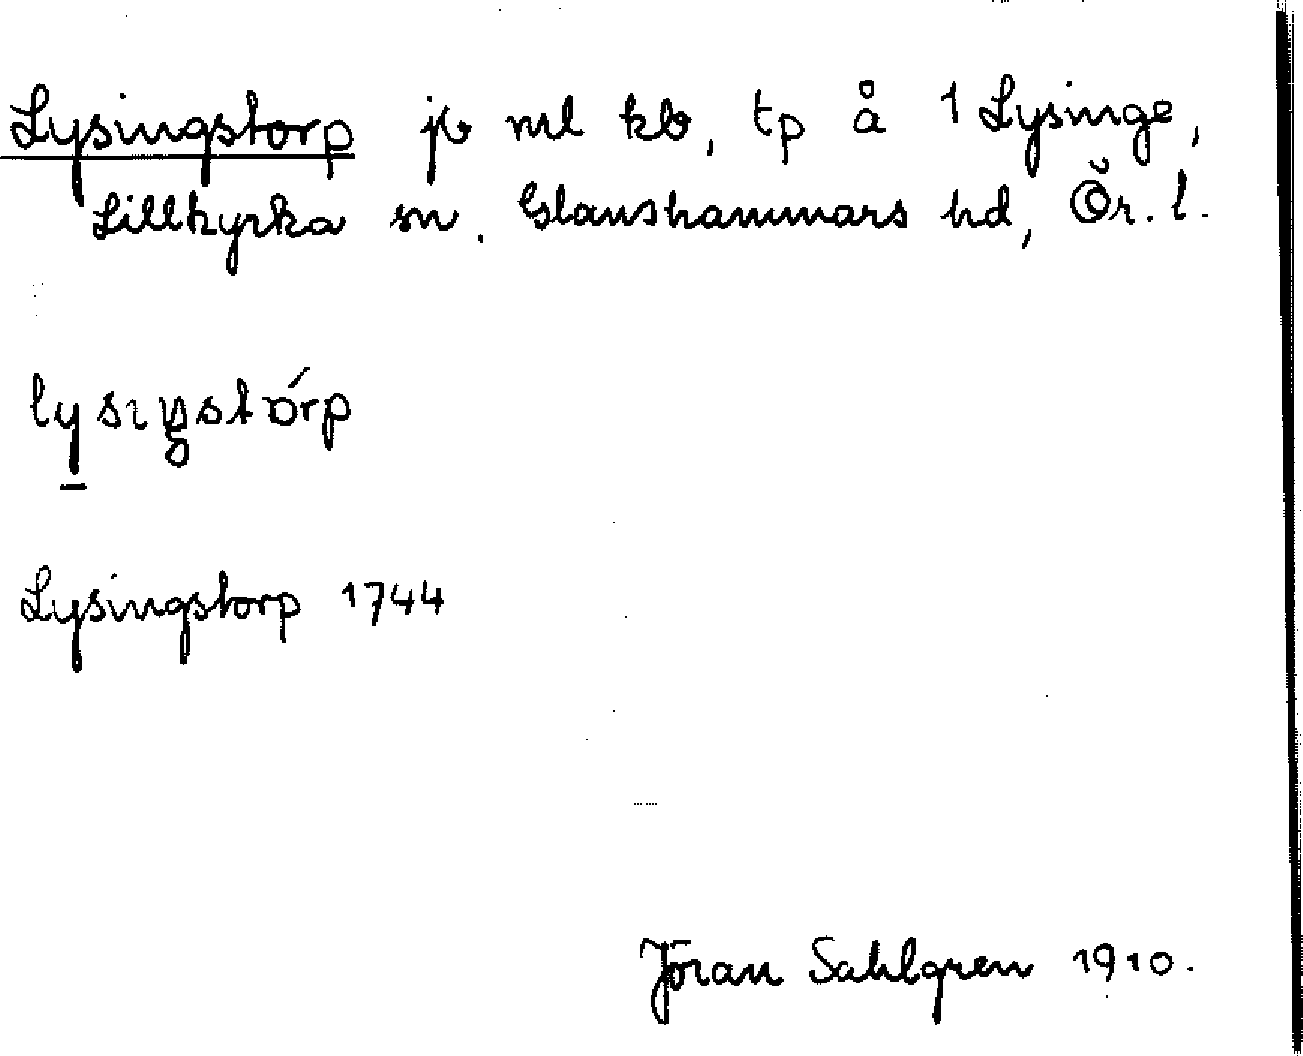 Lysingstorp jb ml kb, tp å 1 Lysinge,
Lillkyrka sn. Glanshammars hd, Ör. l.
Lysingstorp 1744
Jöran Sahlgren 1910.